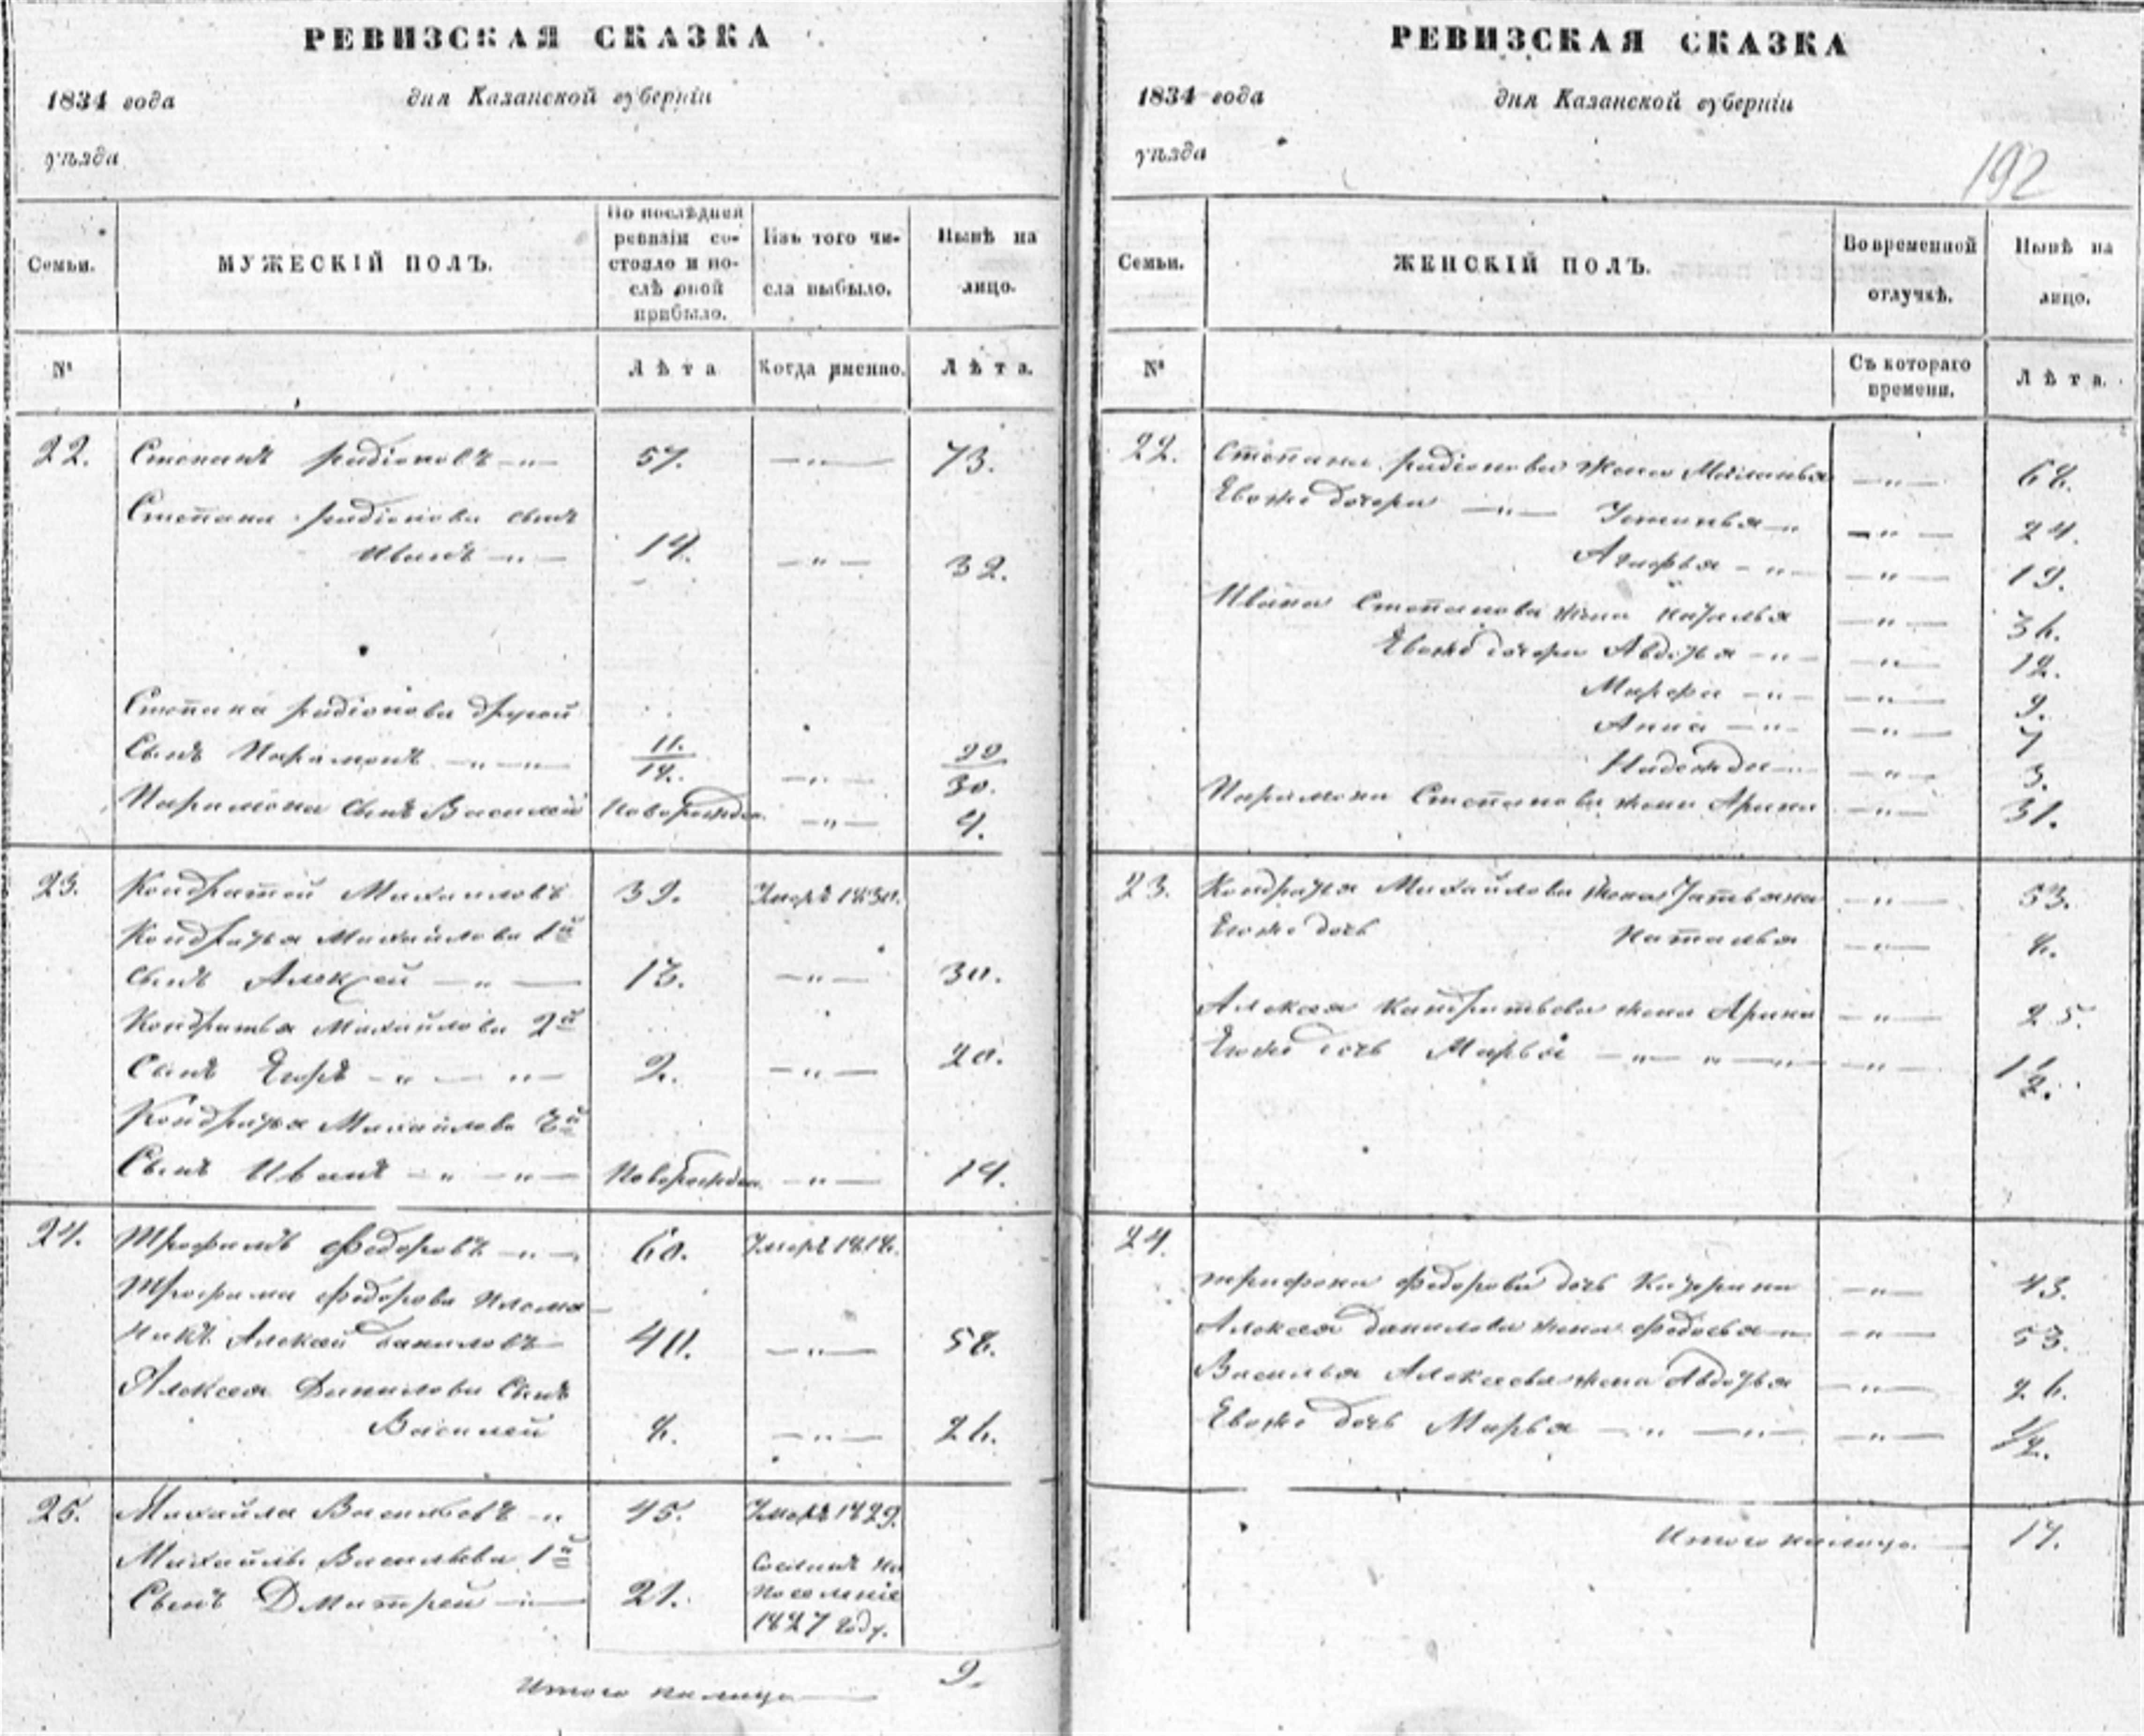 РЕВИЗСКАЯ СКАЗКА
1834 года дня Казанской губерніи
уѣзда
Семьи.
МУЖЕСКІЙ ПОЛЪ.
По послѣдней
ревизіи со-
стояло и по-
слѣ оной
прибыло.
Изъ того чи-
сла выбыло.
Нынѣ на
лицо.
№
Лѣта
Когда именно.
Лѣта.
22. Степанъ радіоновъ —„— 57. —„— 73.
Степана радіонова сынъ
Иванъ —„— 14. —„— 32.
Степана радіонова другой
Сынъ Парамонъ —„—„— 11./14. —„— 22/30.
Парамона сынъ Василій Новорожден. —„— 4.
23. Кондратей Михаиловъ 39. Умеръ 1830.
Кондратья Михайлова 1й
сынъ Алексей —„— 13. —„— 30.
Кондратья Михайлова 2й
Сынъ Егоръ —„—„— 2. —„— 20.
Кондратья Михайлова 3й
Сынъ Иванъ —„—„— Новорожден. —„— 14.
24. Трофимъ Федоровъ —„— 60. Умеръ 1818.
Трофима Федорова племя-
никъ Алексей Даниловъ 40. —„— 58.
Алексея Данилова Сынъ
Василей 8. —„— 26.
25. Михайла Васильевъ —„ 45. Умеръ 1829.
Михайлы Васильева 1й
Сынъ Дмитрей —„— 21.
Сосланъ на
Поселеніе
1827 году.
Итого налицо — 9.
РЕВИЗСКАЯ СКАЗКА
1834 года дня Казанской губерніи
уѣзда
192
Семьи.
ЖЕНСКІЙ ПОЛЪ.
Во временной
отлучкѣ.
Нынѣ на
лицо.
№
Съ котораго
времени.
Лѣта.
22. Степана радіонова жена Маланья —„— 68.
Евоже дочери —„— Устинья —„ —„— 24.
Агафья —„— —„— 19.
Ивана Степанова жена Наталья —„— 36.
Евоже дочери Авдотья —„— —„— 12.
Марфа —„— —„— 9.
Анна —„— —„— 7
Надежда —„— —„— 3.
Парамона Степанова жена Арина —„— 31.
23. Кондратья Михайлова жена Татьяна —„— 53.
Егоже дочь Наталья —„— 8.
Алексея Кандратьева жена Арина —„— 25.
Егоже дочь Марья —„—„—„— —„— 1½.
24.
трифона Федорова дочь Катрина —„— 43.
Алексея Данилова жена Федосья —„— —„— 53.
Василья Алексеева жена Авдотья —„— 26.
Евоже дочь Марья —„—„— —„— ½.
Итого налицо — 17.